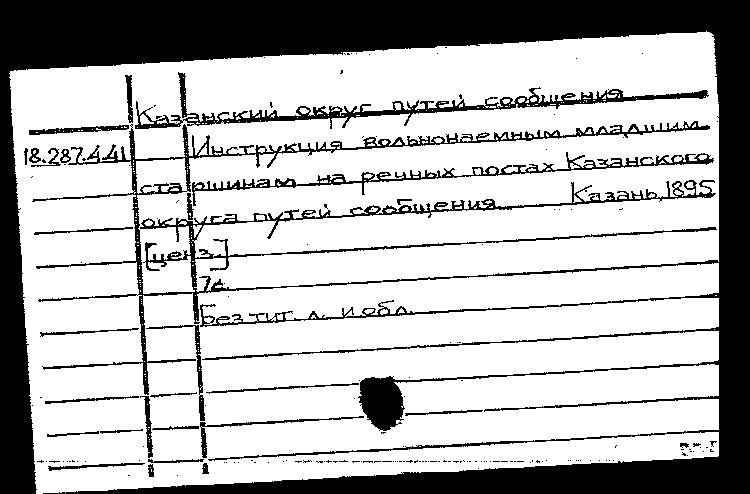 Казанский округ путей сообщения
18.287.4.41 Инструкция вольнонаемным младшим
старшинам на речных постах Казанского
округа путей сообщения Казань, 1895
[ценз.]
7с.
Без тит. л. и обл.